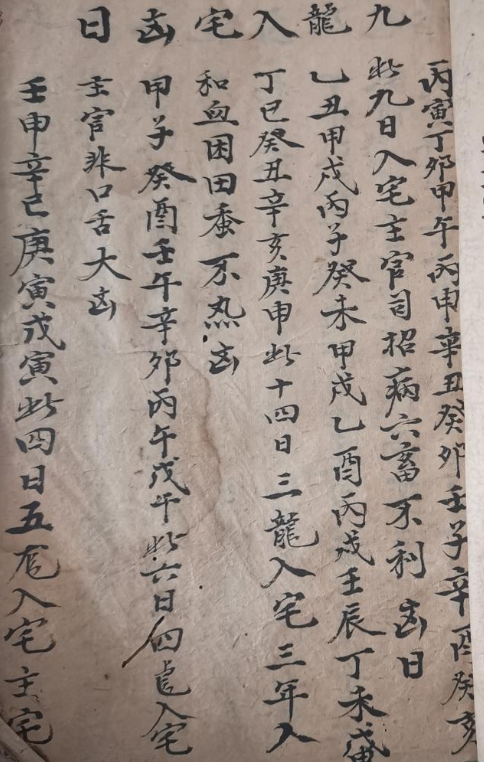 九龍入宅凶日
丙寅丁卯甲午丙申辛丑癸卯壬子辛酉癸亥
此九日入宅主官司招病六畜不利凶日
乙丑甲戌丙子癸未甲戌乙酉丙戌壬辰丁未
丁巳癸丑辛亥庚申此十四日三龍入宅三年入
和血困田蚕不熟凶
甲子癸酉壬午辛卯丙午戊午此六日四入宅
主官非口舌大凶
壬申辛巳庚寅戊寅此四日五入宅主宅